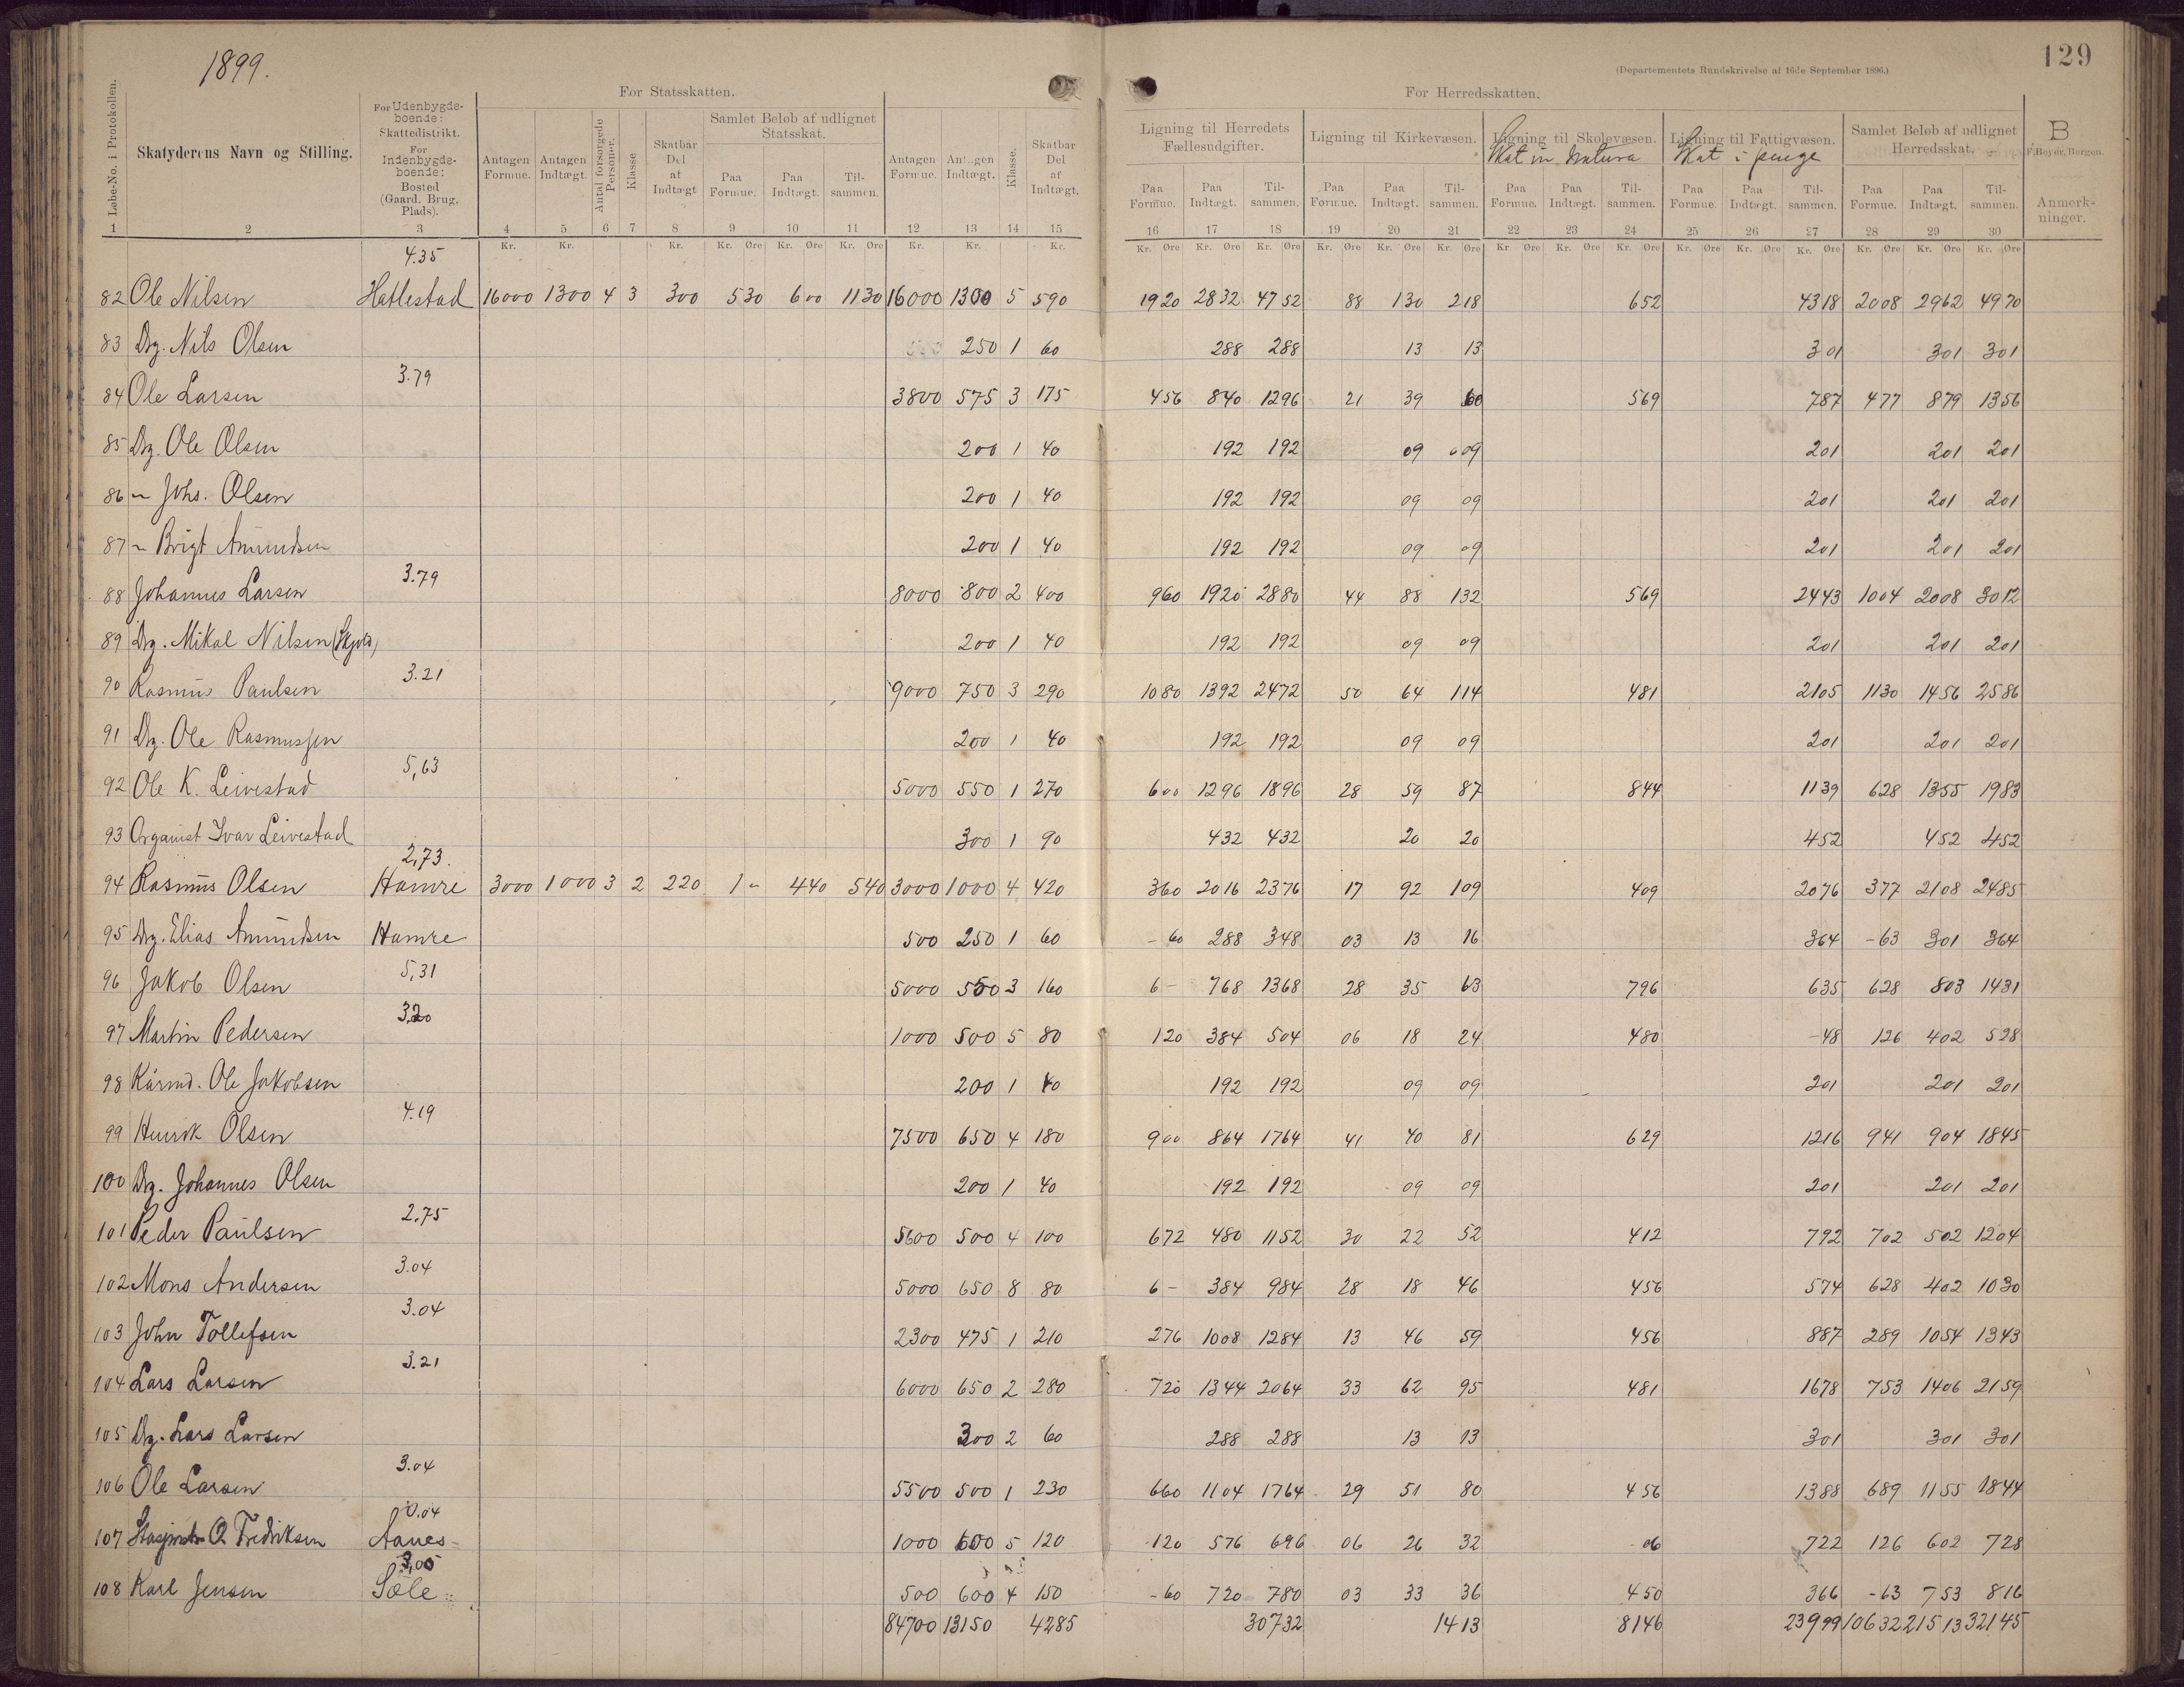 1899.
129
(Departementets Rundskrivelse af 16de September 1896.)
For Statsskatten.
For Herredsskatten.
Løbe-No. i Protokollen.
Skatyderens Navn og Stilling.
For Udenbygdeboende: Skattedistrikt. For Indenbygdeboende: Bosted (Gaard, Brug, Plads).
Antagen Formue. Antagen Indtægt. Antal forsørgede Personer. Klasse Skatbar Del af Indtægt
Samlet Beløb af udlignet Statsskat.
Paa Formue. Paa Indtægt. Tilsammen.
Antagen Formue. Antagen Indtægt. Klasse. Skatbar Del af Indtægt.
Ligning til Herredets Fællesudgifter. Ligning til Kirkevæsen. Ligning til Skolevæsen. Ligning til Fattigvæsen. Samlet Beløb af udlignet Herredsskat. B
Skat in natura Skat i penge
F. Beyer, Bergen.
Paa Formue. Paa Indtægt. Tilsammen. Paa Formue. Paa Indtægt. Tilsammen. Paa Formue. Paa Indtægt. Tilsammen. Paa Formue. Paa Indtægt. Tilsammen. Paa Formue. Paa Indtægt. Tilsammen. Anmerkninger.
1 2 3 4 5 6 7 8 9 10 11 12 13 14 15 16 17 18 19 20 21 22 23 24 25 26 27 28 29 30
Kr. Kr. Kr. Kr. Øre Kr. Øre Kr. Øre Kr. Kr. Kr. Kr. Øre Kr. Øre Kr. Øre Kr. Øre Kr. Øre Kr. Øre Kr. Øre Kr. Øre Kr. Øre Kr. Øre Kr. Øre Kr. Øre Kr. Øre Kr. Øre Kr. Øre
4.35
82 Ole Nilsen Hatlestad 16000 1300 4 3 300 530 600 1130 16000 1300 5 590 1920 2832 4752 88 130 218 652 4318 2008 2962 4970
83 Drg. Nils Olsen 250 1 60 288 288 13 13 301 301 301
3.79
84 Ole Larsen 3800 575 3 175 456 840 1296 21 39 60 569 787 477 879 1356
85 Drg. Ole Olsen 200 1 40 192 192 09 009 201 201 201
86 " Johs. Olsen 200 1 40 192 192 09 09 201 201 201
87 " Brigt Amundsen 200 1 40 192 192 09 09 201 201 201
3.79
88 Johannes Larsen 8000 800 2 400 960 1920 2880 44 88 132 569 2443 1004 2008 3012
89 Drg. Mikal Nilsen (Skjold) 200 1 40 192 192 09 09 201 201 201
3.21
90 Rasmus Paulsen 9000 750 3 290 1080 1392 2472 50 64 114 481 2105 1130 1456 2586
91 Drg. Ole Rasmussen 200 1 40 192 192 09 09 201 201 201
5,63
92 Ole K. Leivestad 5000 550 1 270 600 1296 1896 28 59 87 844 1139 628 1355 1983
93 Organist Ivar Leivestad 300 1 90 432 432 20 20 452 452 452
2,73.
94 Rasmus Olsen Hamre 3000 1000 3 2 220 1 " 440 540 3000 1000 4 420 360 2016 2376 17 92 109 409 2076 377 2108 2485
95 Drg. Elias Amundsen Hamre 500 250 1 60 - 60 288 348 03 13 16 364 -63 301 364
5,31
96 Jakob Olsen 5000 550 3 160 6 - 768 1368 28 35 63 796 635 628 803 1431
3,20
97 Martin Pedersen 1000 500 5 80 120 384 504 06 18 24 480 -48 126 402 528
98 Kårmd. Ole Jakobsen 200 1 40 192 192 09 09 201 201 201
4.19
99 Henrik Olsen 7500 650 4 180 900 864 1764 41 40 81 629 1216 941 904 1845
100 Drg. Johannes Olsen 200 1 40 192 192 09 09 201 201 201
2.75
101 Peder Paulsen 5600 500 4 100 672 480 1152 30 22 52 412 792 702 502 1204
3.04
102 Mons Andersen 5000 650 8 80 6 - 384 984 28 18 46 456 574 628 402 1030
3.04
103 John Tollefsen 2300 475 1 210 276 1008 1284 13 46 59 456 887 289 1054 1343
3.21
104 Lars Larsen 6000 650 2 280 720 1344 2064 33 62 95 481 1678 753 1406 2159
105 Drg. Lars Larsen 300 2 60 288 288 13 13 301 301 301
3.04
106 Ole Larsen 5500 500 1 230 660 1104 1764 29 51 80 456 1388 689 1155 1844
0.04
107 O Fredriksen Aanes 1000 600 5 120 120 576 696 06 26 32 06 722 126 602 728
3,00
108 Karl Jensen Sæle 500 600 4 150 -60 720 780 03 33 36 450 366 -63 753 816
84700 13150 4285 30732 1413 8146 23999 10632 21513 32145